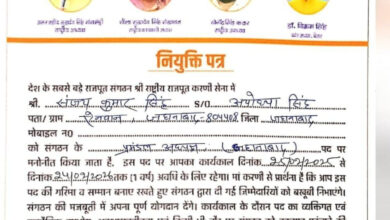 राष्ट्रीय अध्यक्ष
राष्ट्रीय अध्यक्ष
डॉ. विक्रम सिंह
नियुक्ति पत्र
देश के सबसे बड़े राजपूत संगठन श्री राष्ट्रीय राजपूत करणी सेना में
श्री. संजय कुमार सिंह S/O अयोध्या सिंह
पता/ ग्राम ऐनवान, जहानाबाद-804408 जिला जहानाबाद
मोबाइल न०
को संगठन के प्रमंडल अध्यक्ष (जहानाबाद) पद पर
मनोनीत किया जाता है. इस पद पर आपका कार्यकाल दिनांक 25/02/2025 से
दिनांक 24/02/2026 तक (1 वर्ष) अवधि के लिए रहेगा। मां करणी से प्रार्थना है कि आप इस
पद की गरिमा व सम्मान बनाए रखते हुए संगठन द्वारा दी गई जिम्मेदारियों को बखूबी निभाएंगे।
संगठन की मजबूती में अपना पूर्ण योगदान देंगे। कार्यकाल के दौरान पद का व्यक्तिगत एवं